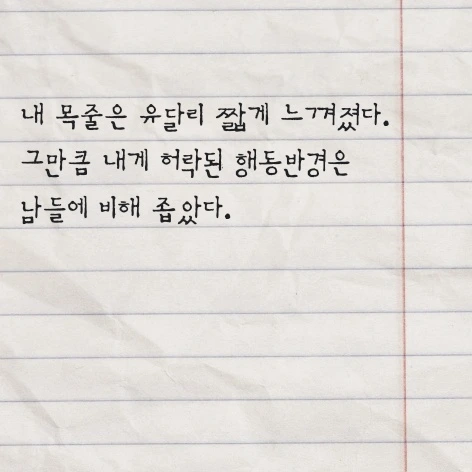 내 목줄은 유달리 짧게 느껴졌다.
그만큼 내게 허락된 행동반경은
남들에 비해 좁았다.